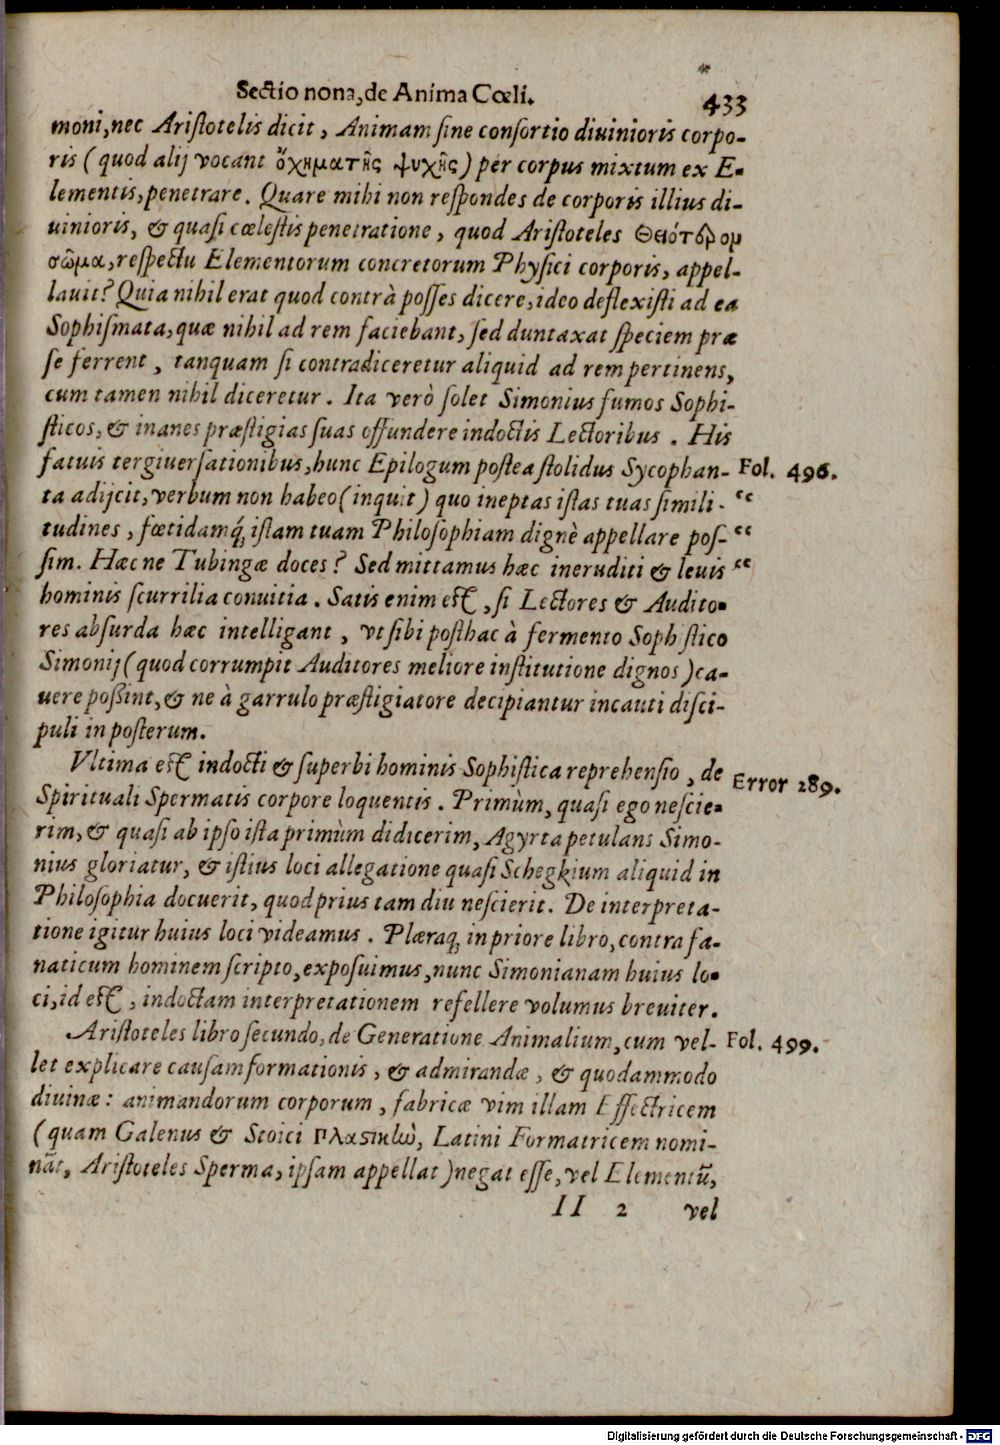 Sectio nona, de Anima Cœli.
433
moni, nec Aristotelis dicit, Animam sine consortio diuinioris corpo-
ris (quod alij vocant ὄχημα τῆς ψυχῆς) per corpus mixtum ex E-
lementis, penetrare. Quare mihi non respondes de corporis illius di-
uinioris, & quasi cœlestis penetratione, quod Aristoteles Θειότερομ
σῶμα, respectu Elementorum concretorum Physici corporis, appel-
lauit? Quia nihil erat quod contrà posses dicere, ideo deflexisti ad ea
Sophismata, quæ nihil ad rem faciebant, sed duntaxat speciem præ
se ferrent, tanquam si contradiceretur aliquid ad rem pertinens,
cum tamen nihil diceretur. Ita verò solet Simonius fumos Sophi-
sticos, & inanes præstigias suas offundere indoctis Lectoribus. His
fatuis tergiuersationibus, hunc Epilogum postea stolidus Sycophan- Fol. 496.
ta adijcit, verbum non habeo (inquit) quo ineptas istas tuas simili- “
tudines, fœtidamq́; istam tuam Philosophiam dignè appellare pos- “
sim. Hæcne Tubingæ doces? Sed mittamus hæc ineruditi & leuis “
hominis scurrilia conuitia. Satis enim est, si Lectores & Audito-
res absurda hæc intelligant, vt sibi posthac à fermento Sophistico
Simonij (quod corrumpit Auditores meliore institutione dignos) ca-
uere possint, & ne à garrulo præstigiatore decipiantur incauti disci-
puli in posterum.
Vltima est indocti & superbi hominis Sophistica reprehensio, de Error 289.
Spirituali Spermatis corpore loquentis. Primùm, quasi ego nescie-
rim, & quasi ab ipso ista primùm didicerim, Agyrta petulans Simo-
nius gloriatur, & istius loci allegatione quasi Schegkium aliquid in
Philosophia docuerit, quod prius tam diu nescierit. De interpreta-
tione igitur huius loci videamus. Plæraq; in priore libro, contra fa-
naticum hominem scripto, exposuimus, nunc Simonianam huius lo-
ci, id est, indoctam interpretationem refellere volumus breuiter.
Aristoteles libro secundo, de Generatione Animalium, cum vel- Fol. 499.
let explicare causam formationis, & admirandæ, & quodammodo
diuinæ: animandorum corporum, fabricæ vim illam Effectricem
(quam Galenus & Stoici πλαστικὼ, Latini Formatricem nomi-
nāt, Aristoteles Sperma, ipsam appellat) negat esse, vel Elementū,
II 2 vel
Digitalisierung gefördert durch die Deutsche Forschungsgemeinschaft - DFG